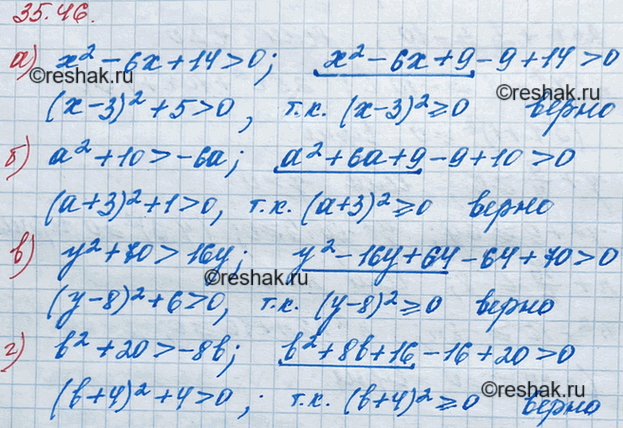 35.46.
а) x² - 6x + 14 > 0; x² - 6x + 9 - 9 + 14 > 0
(x - 3)² + 5 > 0, т.к. (x - 3)² ≥ 0 верно
б) a² + 10 > -6a; a² + 6a + 9 - 9 + 10 > 0
(a + 3)² + 1 > 0, т.к. (a + 3)² ≥ 0 верно
в) y² + 70 > 16y; y² - 16y + 64 - 64 + 70 > 0
(y - 8)² + 6 > 0, т.к. (y - 8)² ≥ 0 верно
г) b² + 20 > -8b; b² + 8b + 16 - 16 + 20 > 0
(b + 4)² + 4 > 0, т.к. (b + 4)² ≥ 0 верно
©reshak.ru
©reshak.ru
©reshak.ru
©reshak.ru